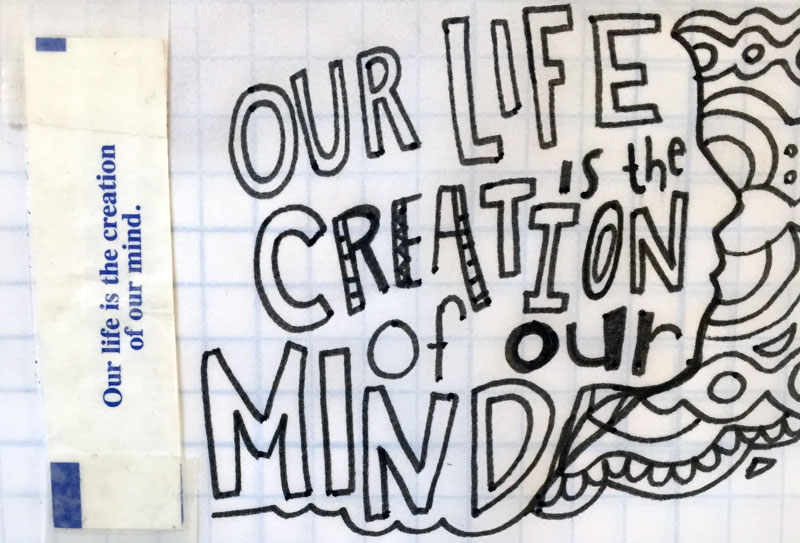 Our life is the creation
of our mind.
OUR LIFE
is the
CREATION
of our
MIND